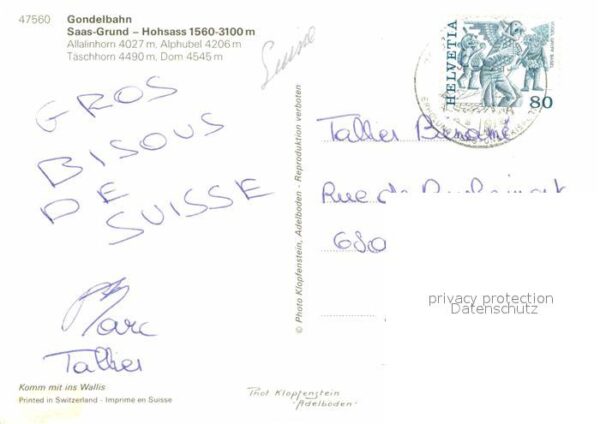 47560 Gondelbahn
Saas-Grund – Hohsass 1560-3100 m
Allalinhorn 4027 m, Alphubel 4206 m
Täschhorn 4490 m, Dom 4545 m
Suisse
GROS
BISOUS
DE
SUISSE
Marc
Tallier
Komm mit ins Wallis
Printed in Switzerland - Imprime en Suisse
© Photo Klopfenstein, Adelboden - Reproduktion verboten
HELVETIA
80
VOGEL GRYFF BASEL
Tallier Bienaimé
Rue de
680
privacy protection
Datenschutz
Phot Klopfenstein
"Adelboden"